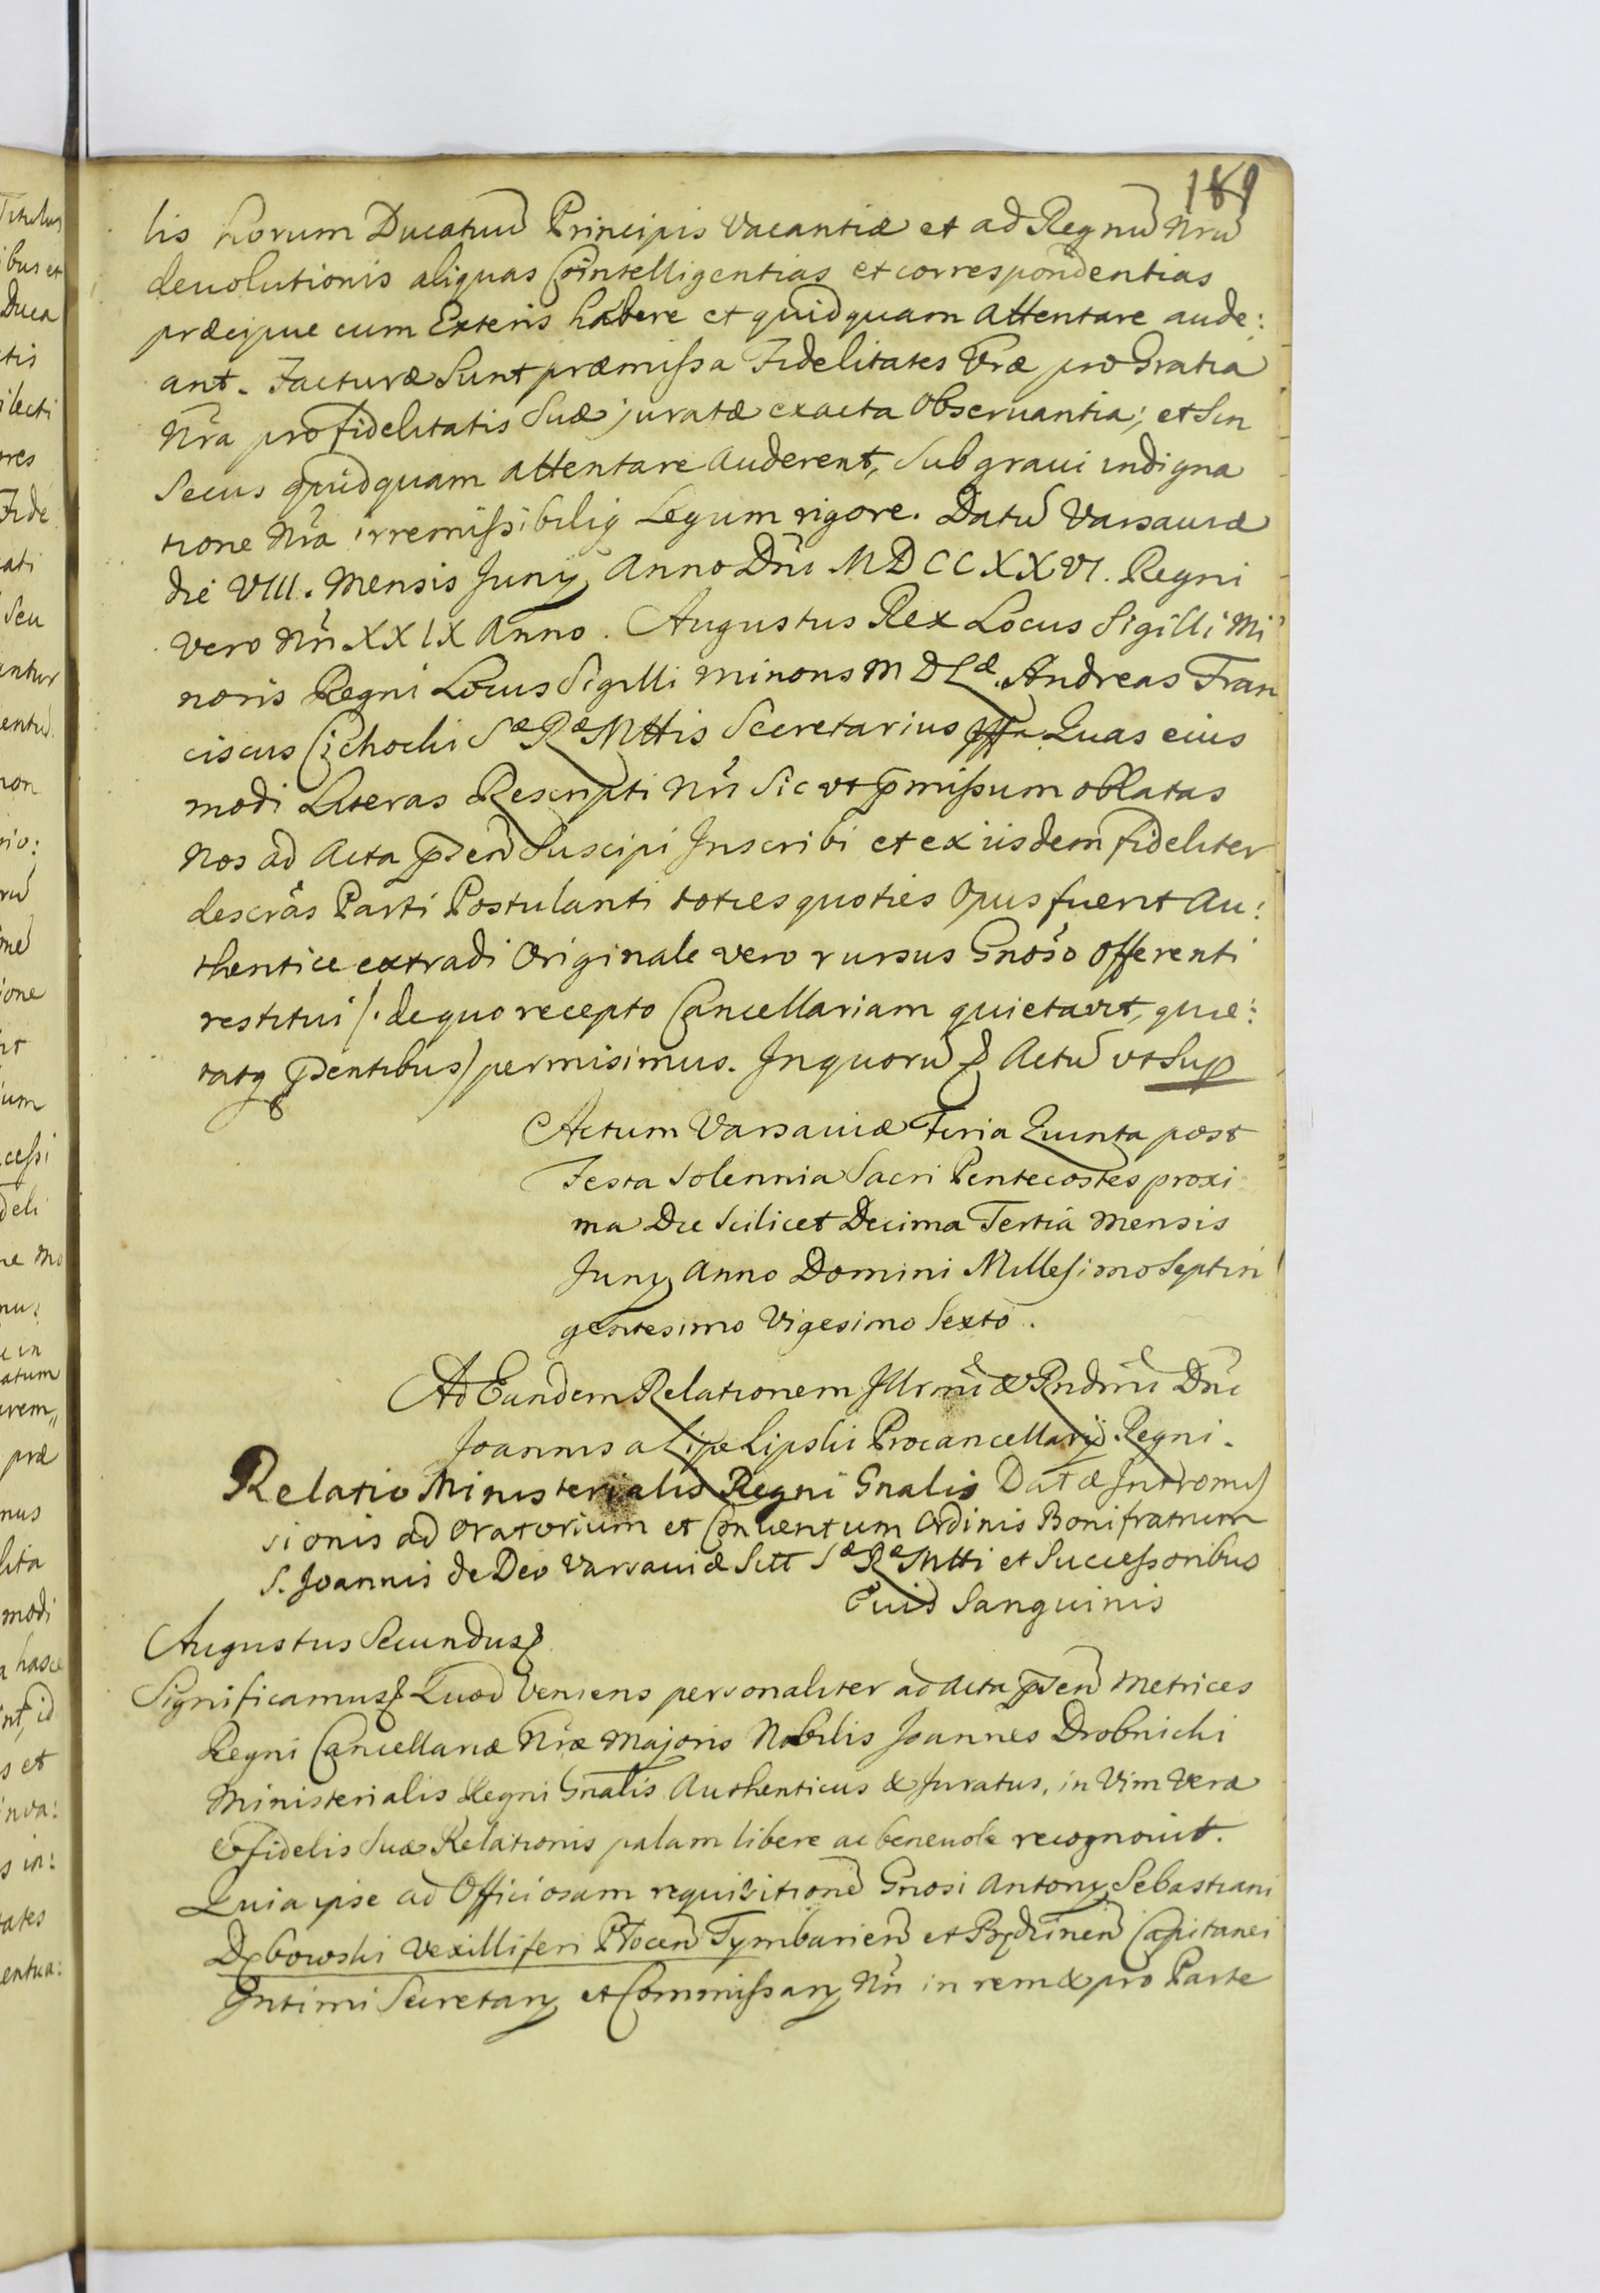 189
lis horum Ducatuũ Principis Vacantiæ et ad Regnũ Nrũ
deuolutionis aliquas Cointelligentias et correspondentias
præcipue cum Exteris habere et quidquam attentare aude:
ant. Facturæ Sunt præmissa Fidelitates Vræ pro Gratia
Nra pro fidelitatis Suæ juratæ exacta Observantia; et Sin
Secus quidquam attentare Auderent, Sub graui indigna
tione Nra irremissibiliq Legum rigore. Datũ Varsauiæ
die VIII. Mensis Junÿ Anno Dni MDCCXXVI. Regni
vero Nri XXIX Anno. Augustus Rex Locus Sigilli Mi
noris Regni Locus Sigilli minoris M D Læ. Andreas Fran
ciscus Cichocki Sæ Ræ Mttis Secretarius Quas eius
modi Literas Rescripti Nri Sic ut pmissum oblatas
Nos ad Acta pñ Suscipi Inscribi et ex iisdem fideliter
descrãs Parti Postulanti toties quoties Opus fuerit Au:
thentice extradi Originale vero rursus Gnoso Offerenti
restitui /. de quo recepto Cancellariam quietavit, quie:
tatq pñtibus) permisimus. In quorũ Actũ ut Sup
Actum Varsauiæ Feria Quinta post
Festa Solennia Sacri Pentecostes proxi
ma Die Scilicet Decima Tertia Mensis
Junÿ Anno Domini Millesimo Septin
gentesimo Vigesimo Sexto.
Ad Eandem Relationem Illrmi & Rndmi Dni
Joannis a Lipe Lipski Procancellarÿ Regni.
Relatio Ministerialis Regni Gnalis Datæ Intromis
sionis ad Oratorium et Conuentum Ordinis Bonifratrum
S. Joannis de Deo Varsauiæ Sitt Sæ Ræ Mtti et Successoribus
Eius Sanguinis
Augustus Secundus
Significamus Quod Veniens personaliter ad Acta pñ Metrices
Regni Cancellariæ Nræ Majoris Nobilis Joannes Drobnicki
Ministerialis Regni Gnalis Authenticus & Juratus, in Vim Veræ
& fidelis Suæ Relationis palam libere ac beneuole recognouit.
Quia ipse ad Officiosam requisitionẽ Gnosi Antonÿ Sebastiani
Dębowski Vexilliferi Tymbarien et Capitanei
Intimi Secretarÿ et Commissarÿ Nri in rem & pro Parte